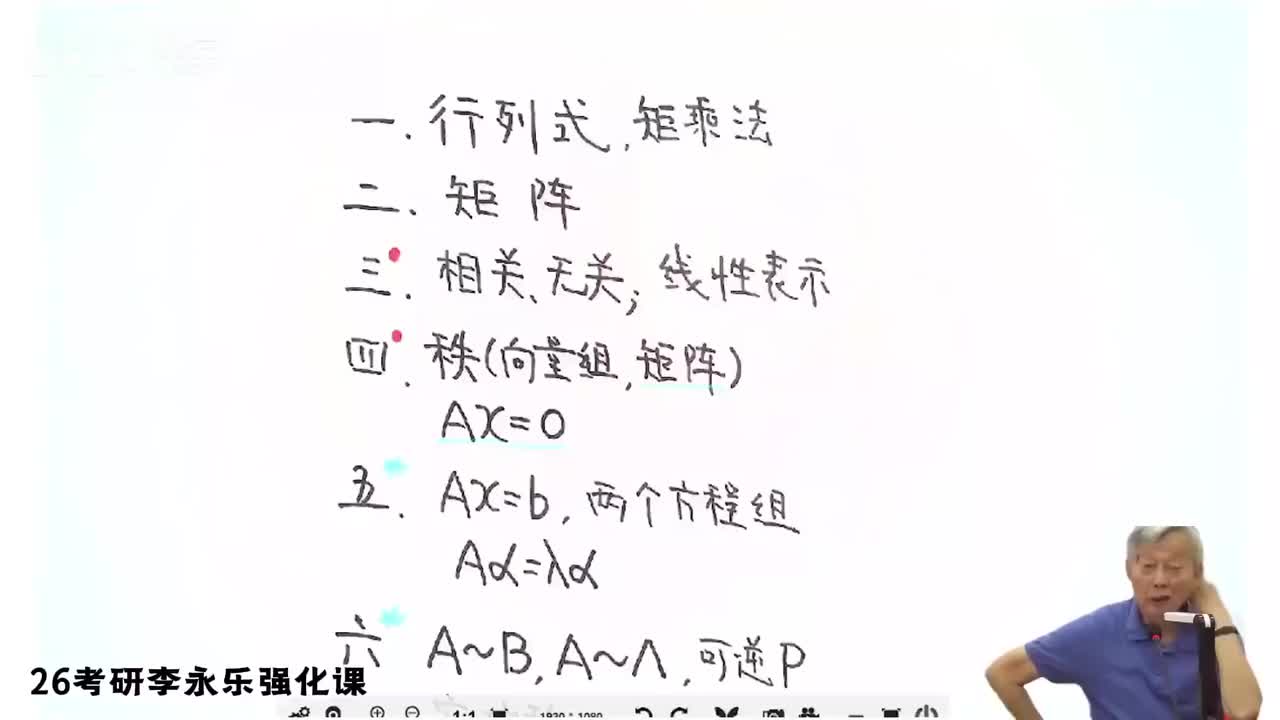 一. 行列式, 矩乘法
二. 矩 阵
三. 相关、无关; 线性表示
四. 秩(向量组, 矩阵)
AX=0
五. AX=b, 两个方程组
Aα=λα
六 A~B, A~Λ, 可逆P
26考研李永乐强化课
1:1 1920:1080